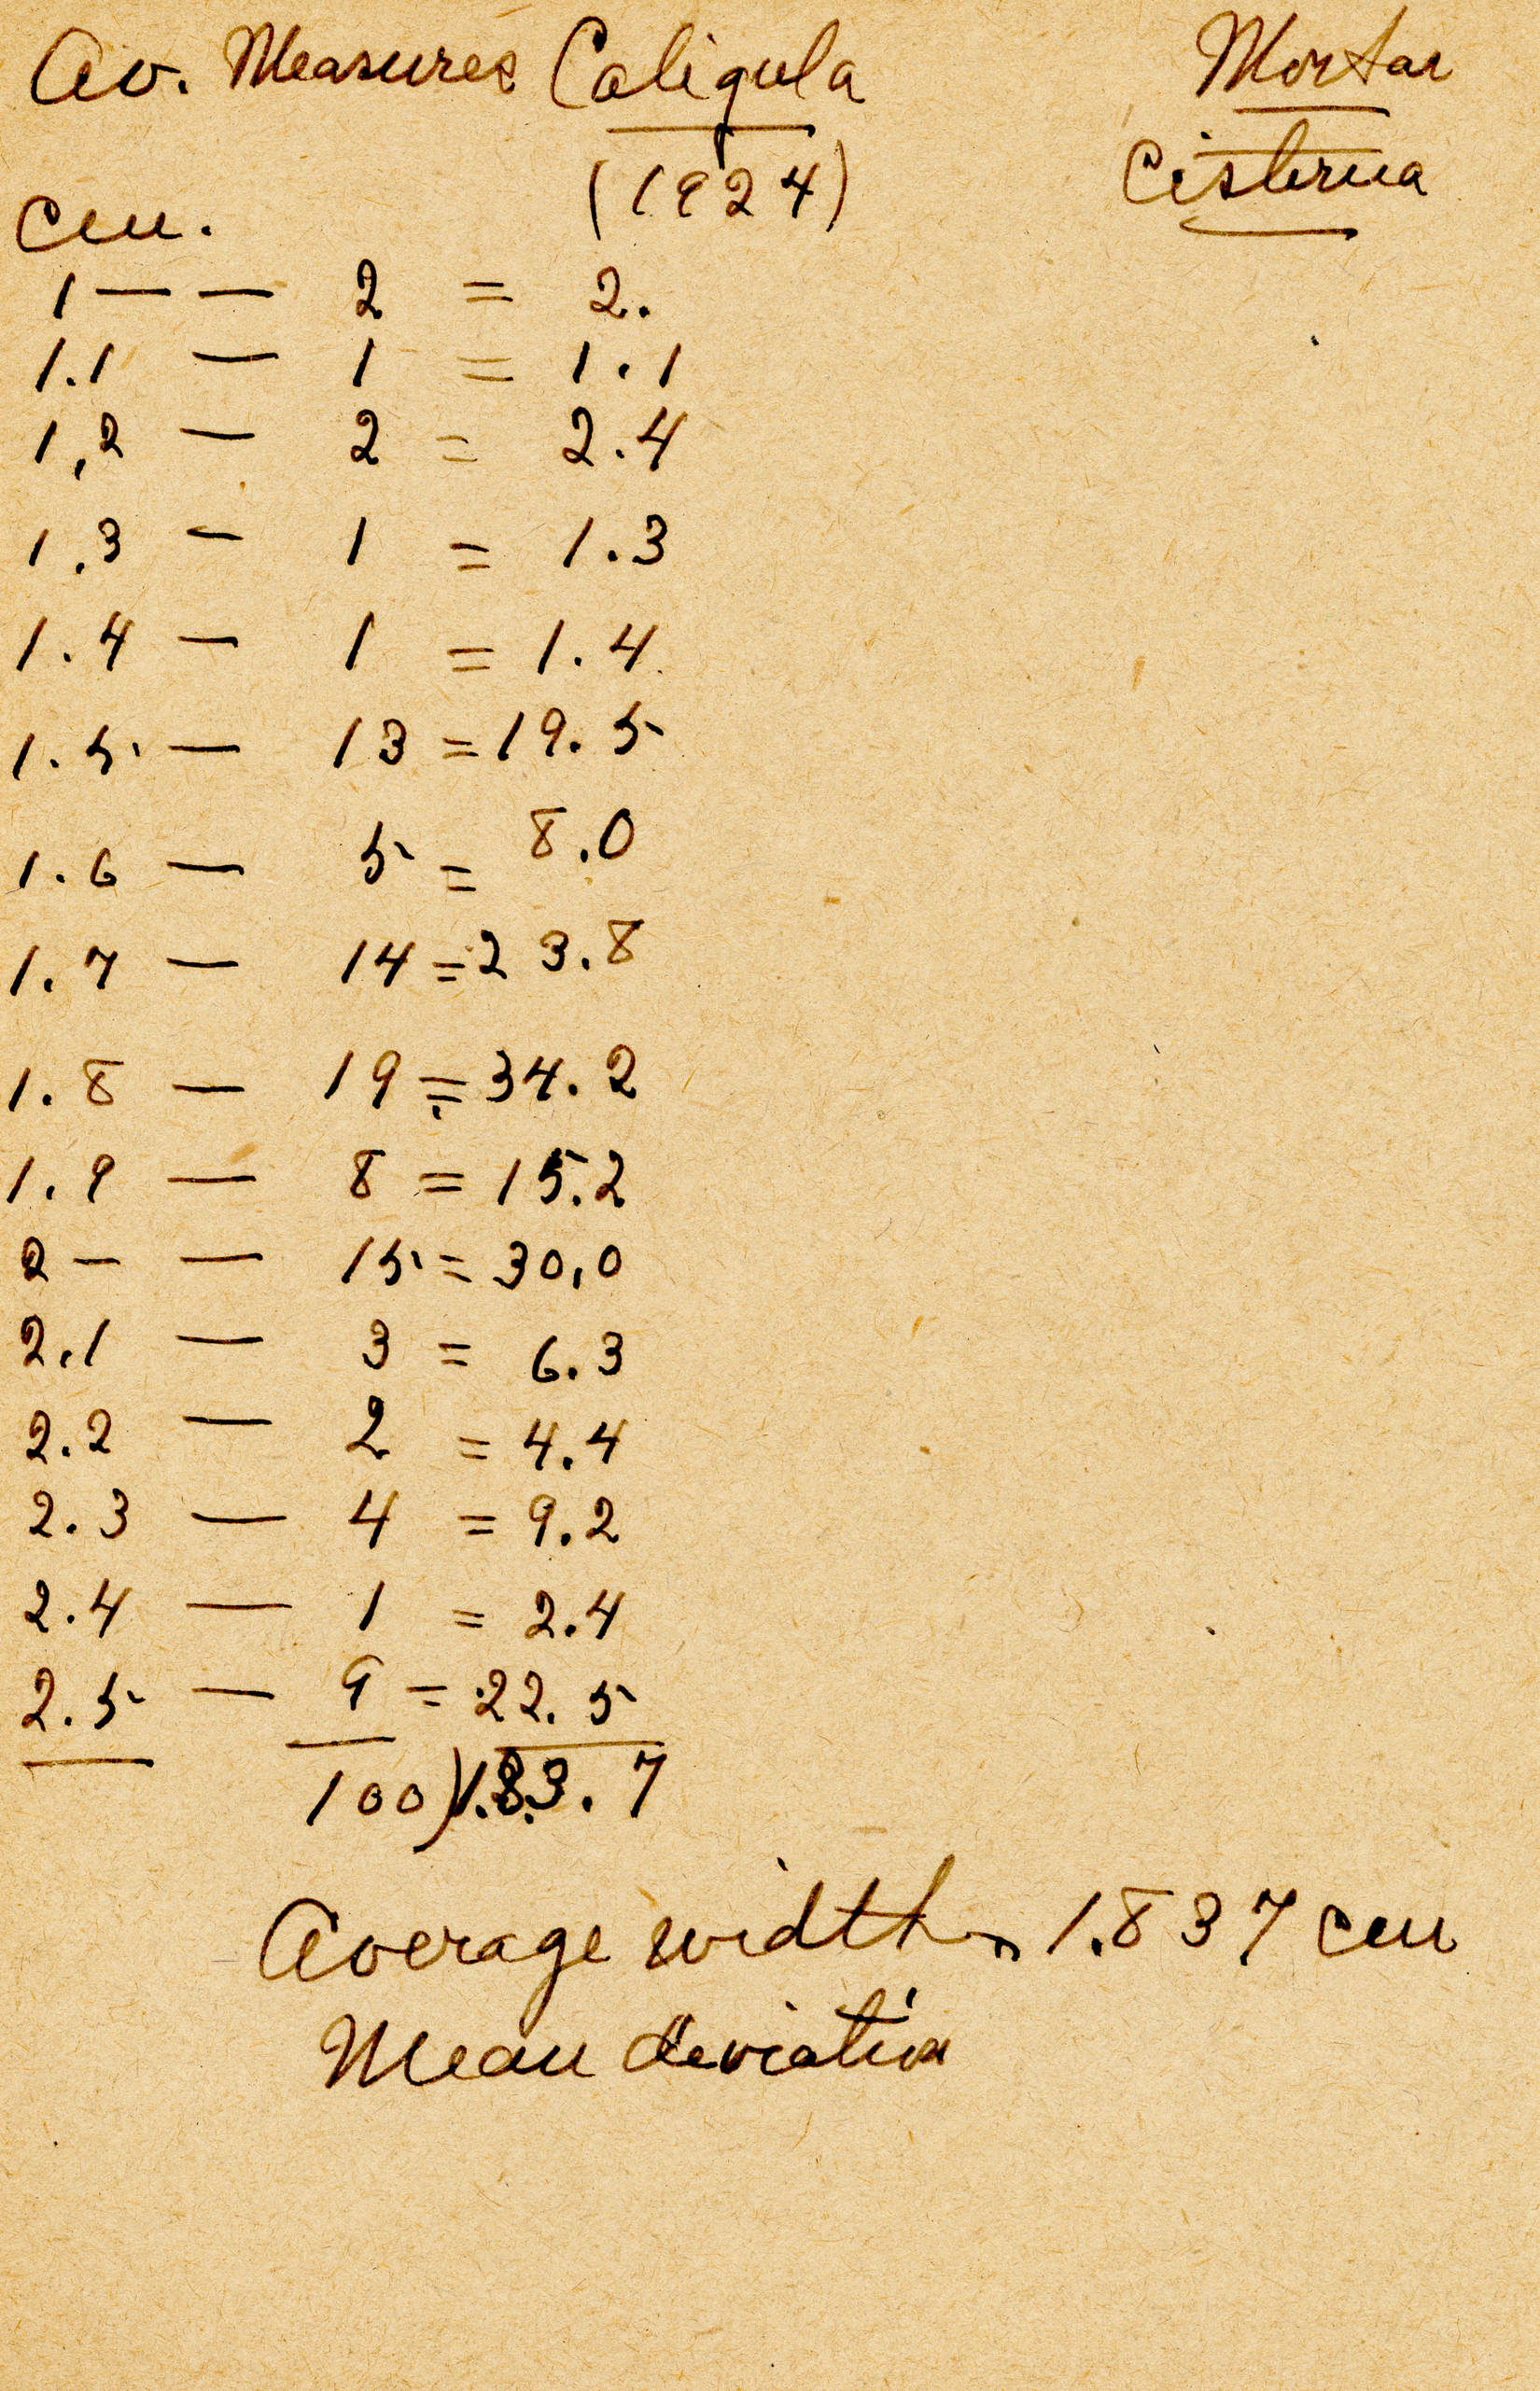 Av. Measures Caligula Mortar
(1924) Cisterna
cm.
1 — — 2 = 2.
1.1 — 1 = 1.1
1,2 — 2 = 2.4
1.3 — 1 = 1.3
1.4 — 1 = 1.4
1.5 — 13 = 19.5
1.6 — 5 = 8.0
1.7 — 14 = 23.8
1.8 — 19 = 34.2
1.9 — 8 = 15.2
2 — — 15 = 30,0
2.1 — 3 = 6.3
2.2 — 2 = 4.4
2.3 — 4 = 9.2
2.4 — 1 = 2.4
2.5 — 9 = 22.5
100)1.83.7
Average width, 1.837 cm
Mean deviation